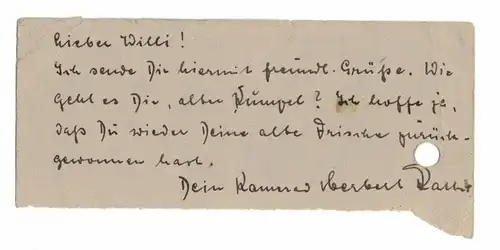 Lieber Willi!
Ich sende Dir hiermit freundl. Grüße. Wie
geht es Dir, alter Kumpel? Ich hoffe ja,
daß Du wieder Deine alte Frische zurück-
gewonnen hast.
Dein Kamerad Herbert